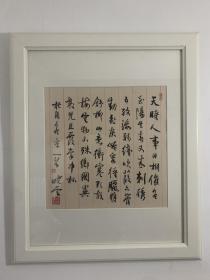 天時人事日相催冬
至陽生春又來刺繡
五紋添弱線吹葭六管
動飛灰岸容待臘將
舒柳山意衝寒欲放
梅雲物不殊鄉國異
教兒且覆掌中杯
杜甫